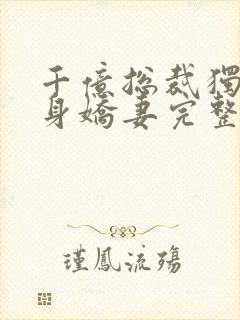 千億総裁獨
身嬌妻完整
瑾鳳流殤